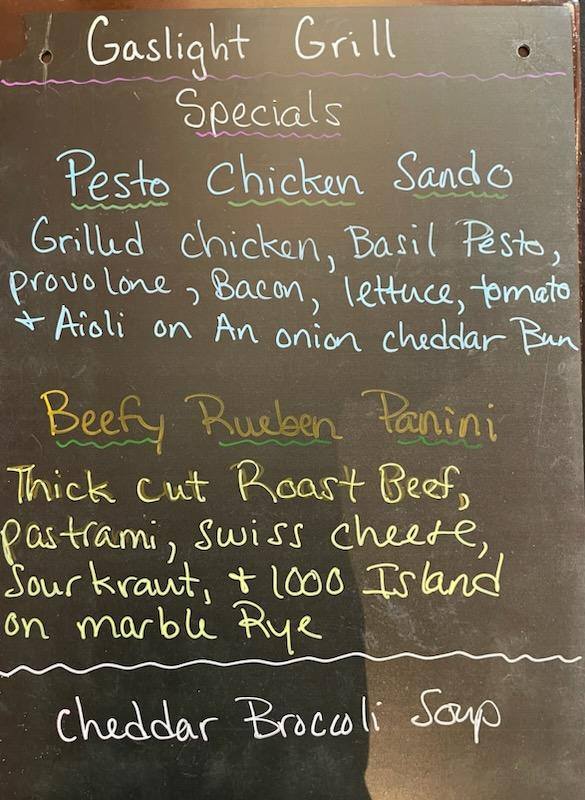 Gaslight Grill
Specials
Pesto Chicken Sando
Grilled chicken, Basil Pesto,
provolone, Bacon, lettuce, tomato
+ Aioli on An onion cheddar Bun
Beefy Rueben Panini
Thick cut Roast Beef,
pastrami, swiss cheese,
Sourkraut, + 1000 Island
on marble Rye
Cheddar Broccoli Soup